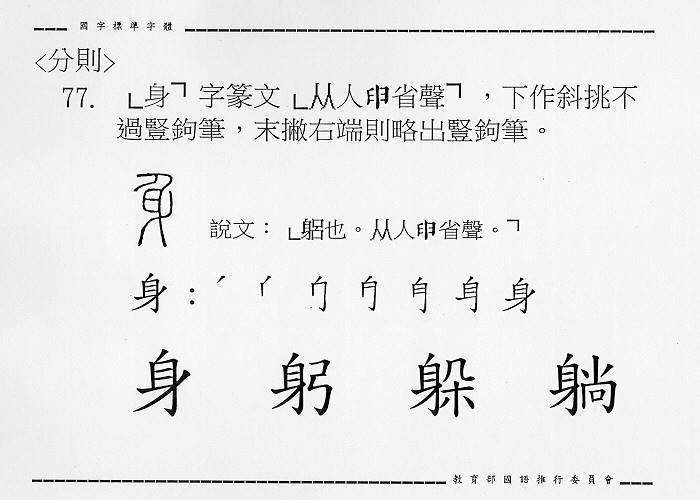 國字標準字體
<分則>
77. 「身」字篆文「从人申省聲」，下作斜挑不
過豎鉤筆，末撇右端則略出豎鉤筆。
說文：「躳也。从人申省聲。」
身：
身 躬 躲 躺
教育部國語推行委員會